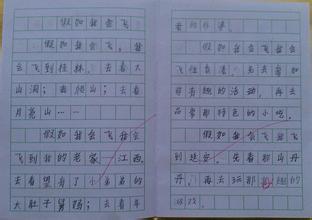 假如我会飞
假如我会飞，我
会飞到桂林，去看大
山洞；去爬山；去看
月亮山……
假如我会飞我会
飞到我的老家，江西。
去看望有了小弟弟的
大肚子舅妈；去看年
老的外婆。
假如我会飞我会
飞往香港，去去看
有趣的活动，再去
品尝那特色的小吃。
假如我会飞我飞
到延安，先看那山丹
丹，再去玩那有趣的
游戏。